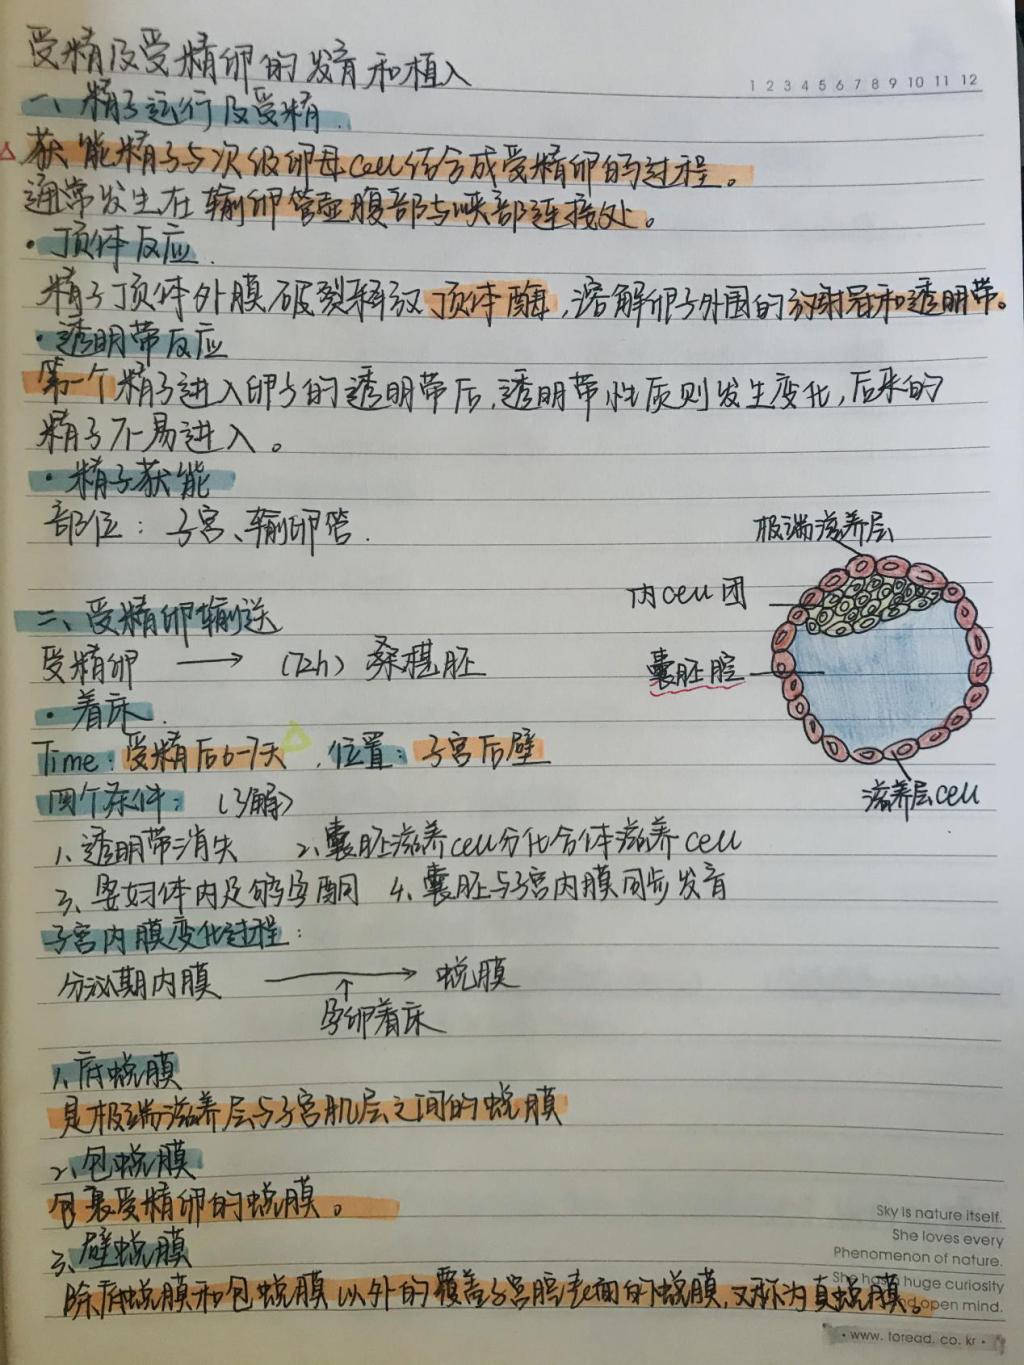 受精及受精卵的发育和植入
1 2 3 4 5 6 7 8 9 10 11 12
一、精子运行及受精.
获能精子与次级卵母cell结合成受精卵的过程。
通常发生在输卵管壶腹部与峡部连接处。
·顶体反应.
精子顶体外膜破裂释放顶体酶,溶解卵子外围的放射冠和透明带。
·透明带反应
第一个精子进入卵子的透明带后,透明带性质则发生变化,后来的
精子不易进入。
·精子获能
部位：子宫、输卵管.
极端滋养层
内cell团
囊胚腔
滋养层cell
二、受精卵输送
受精卵 → (72h) 桑椹胚
·着床.
Time:受精后6-7天,位置:子宫后壁
四个条件:（了解）
1、透明带消失 2、囊胚滋养cell分化合体滋养cell
3、孕妇体内足够孕酮 4、囊胚与子宫内膜同步发育
子宫内膜变化过程:
分泌期内膜 → 蜕膜
↑
孕卵着床
1、底蜕膜
是极端滋养层与子宫肌层之间的蜕膜
2、包蜕膜
包裹受精卵的蜕膜。
3、壁蜕膜
除底蜕膜和包蜕膜以外的覆盖子宫腔表面的蜕膜,又称为真蜕膜。
Sky is nature itself.
She loves every
Phenomenon of nature.
She has a huge curiosity
and open mind.
· www. toread. co. kr ·